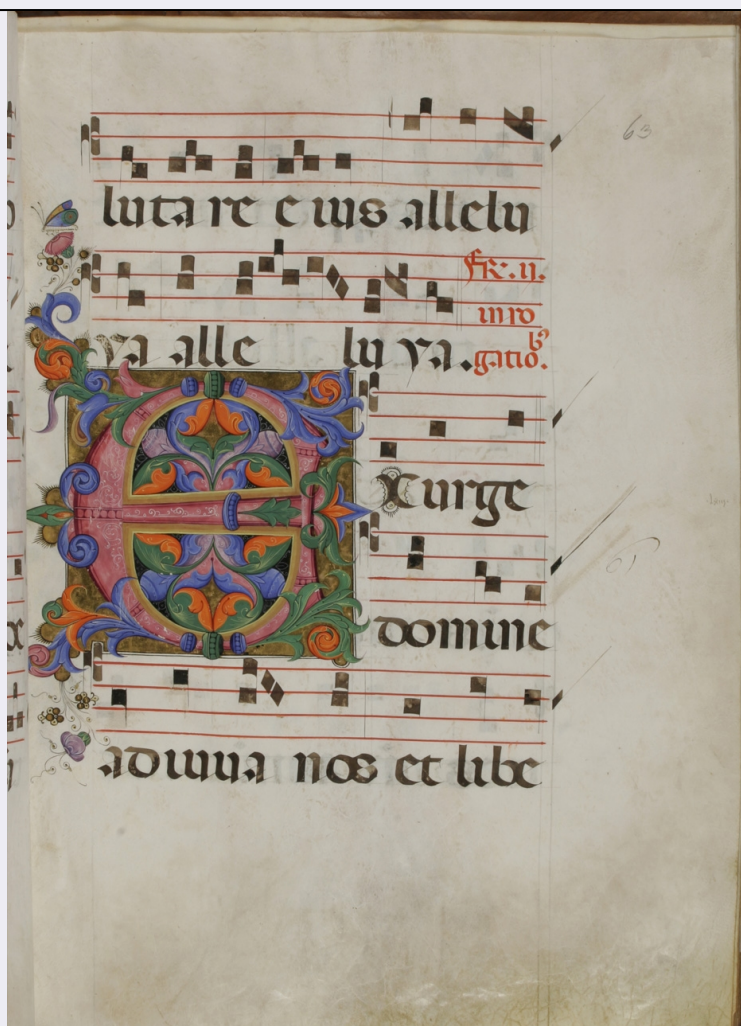 63
lutare eius allelu
ya alle lu ya. fR. II.
in ro
gatio.
Exurge
65
domine
adiuua nos et libe